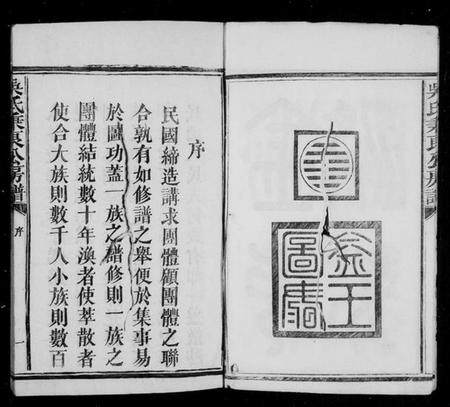 序
民國締造講求團體顧團體之聯
合孰有如修譜之舉便於集事易
於圖功蓋一族之譜修則一族之
團體結統數十年渙者使萃散者
使合大族則數千人小族則數百
吳氏秉良公房譜
序
一